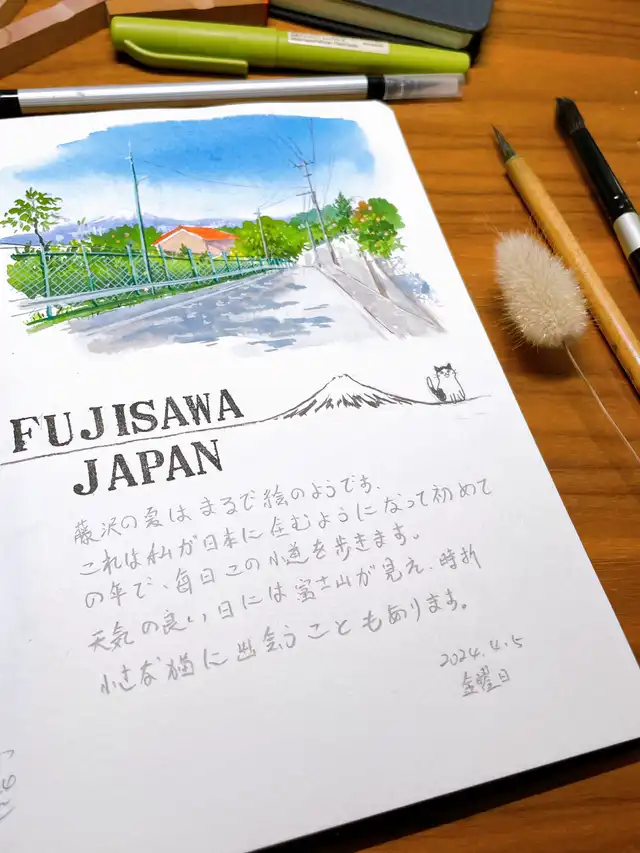 FUJISAWA
JAPAN
藤沢の夏はまるで絵のようです、
これは私が日本に住むようになって初めて
の年で、毎日この小道を歩きます。
天気の良い日には富士山が見え、時折
小さな猫に出会うこともあります。
2024.4.5
金曜日